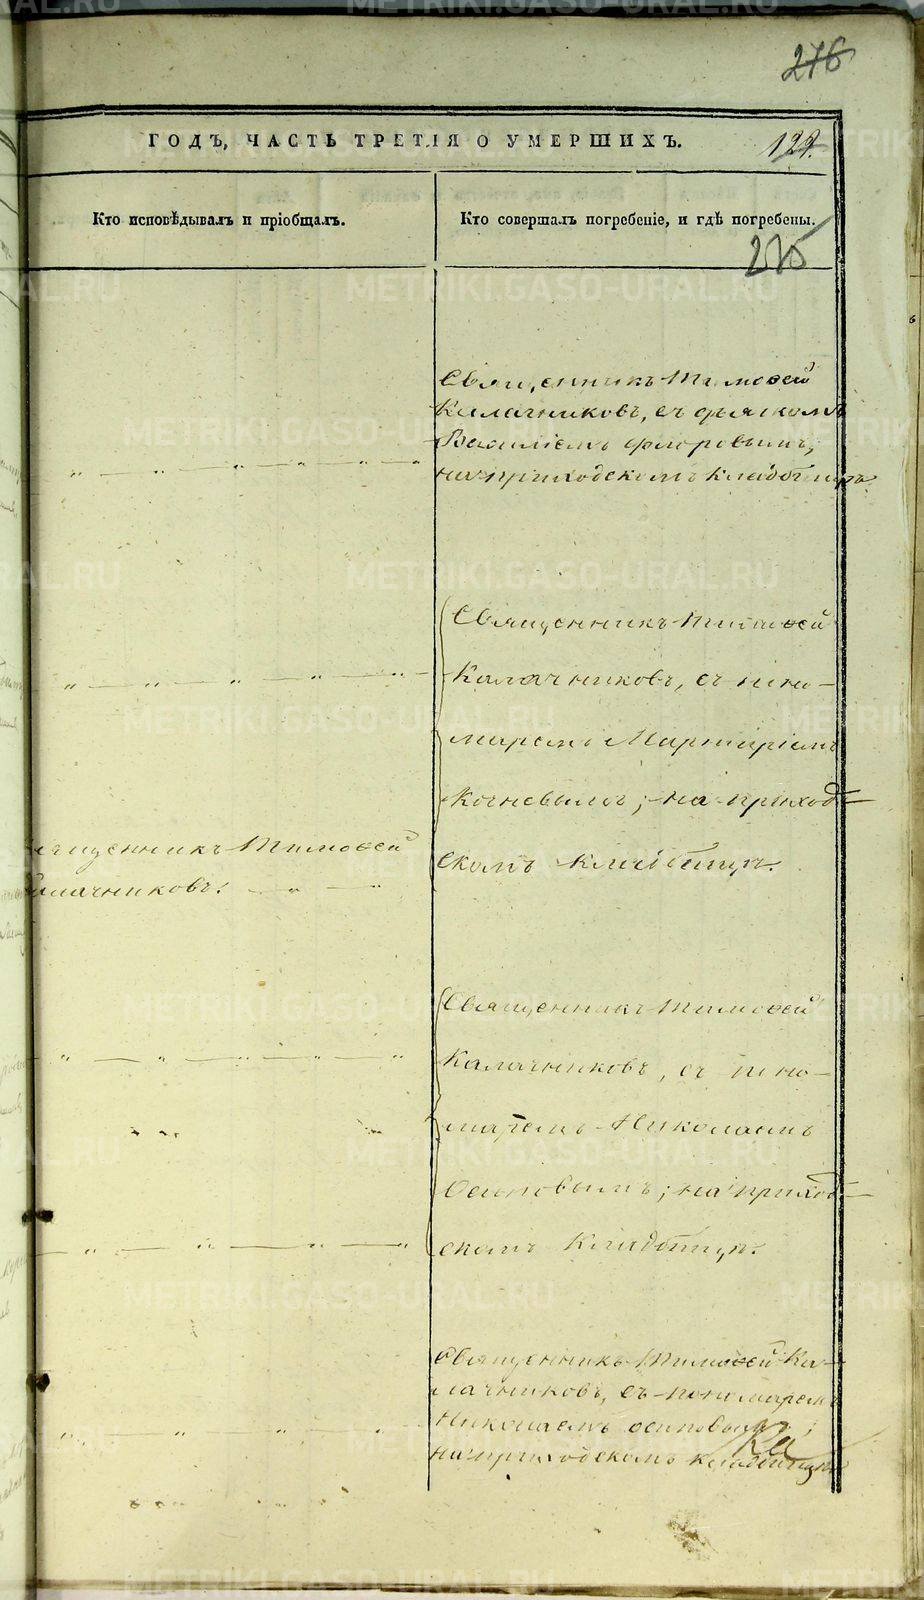 276
ГОДЪ, ЧАСТЬ ТРЕТІЯ О УМЕРШИХЪ.
129.
Кто исповѣдывалъ и пріобщалъ.
Кто совершалъ погребеніе, и гдѣ погребены.
275
Священникъ Тимоѳей
Калачниковъ, съ дьякомъ
Василіемъ Флоровымъ;
на приходскомъ кладбищѣ.
Священникъ Тимоѳей
Калачниковъ, съ поно-
маремъ Мартиріемъ
Кочневымъ; на приход-
скомъ кладбищѣ.
Священникъ Тимоѳей
Калачниковъ.
Священникъ Тимоѳей
Калачниковъ, съ поно-
маремъ Николаемъ
Осиповымъ; на приход-
скомъ кладбищѣ.
Священникъ Тимоѳей Ка-
лачниковъ, съ пономаремъ
Николаемъ Осиповымъ;
на приходскомъ кладбищѣ
METRIKI.GASO-URAL.RU